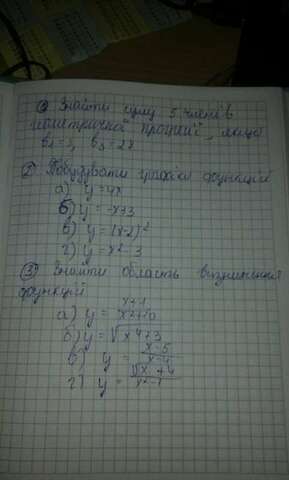 ① Знайти суму 5 членів
геометричної прогресії, якщо
b₁=3,
② Побудувати графіки функцій
а) y=4x
б) y=-x+3
в) y=(x-2)²
г) y=x²-3
③ Знайти область визначення
функцій
а) y=
б) y=
в) y= x-5/x-4
г) y=